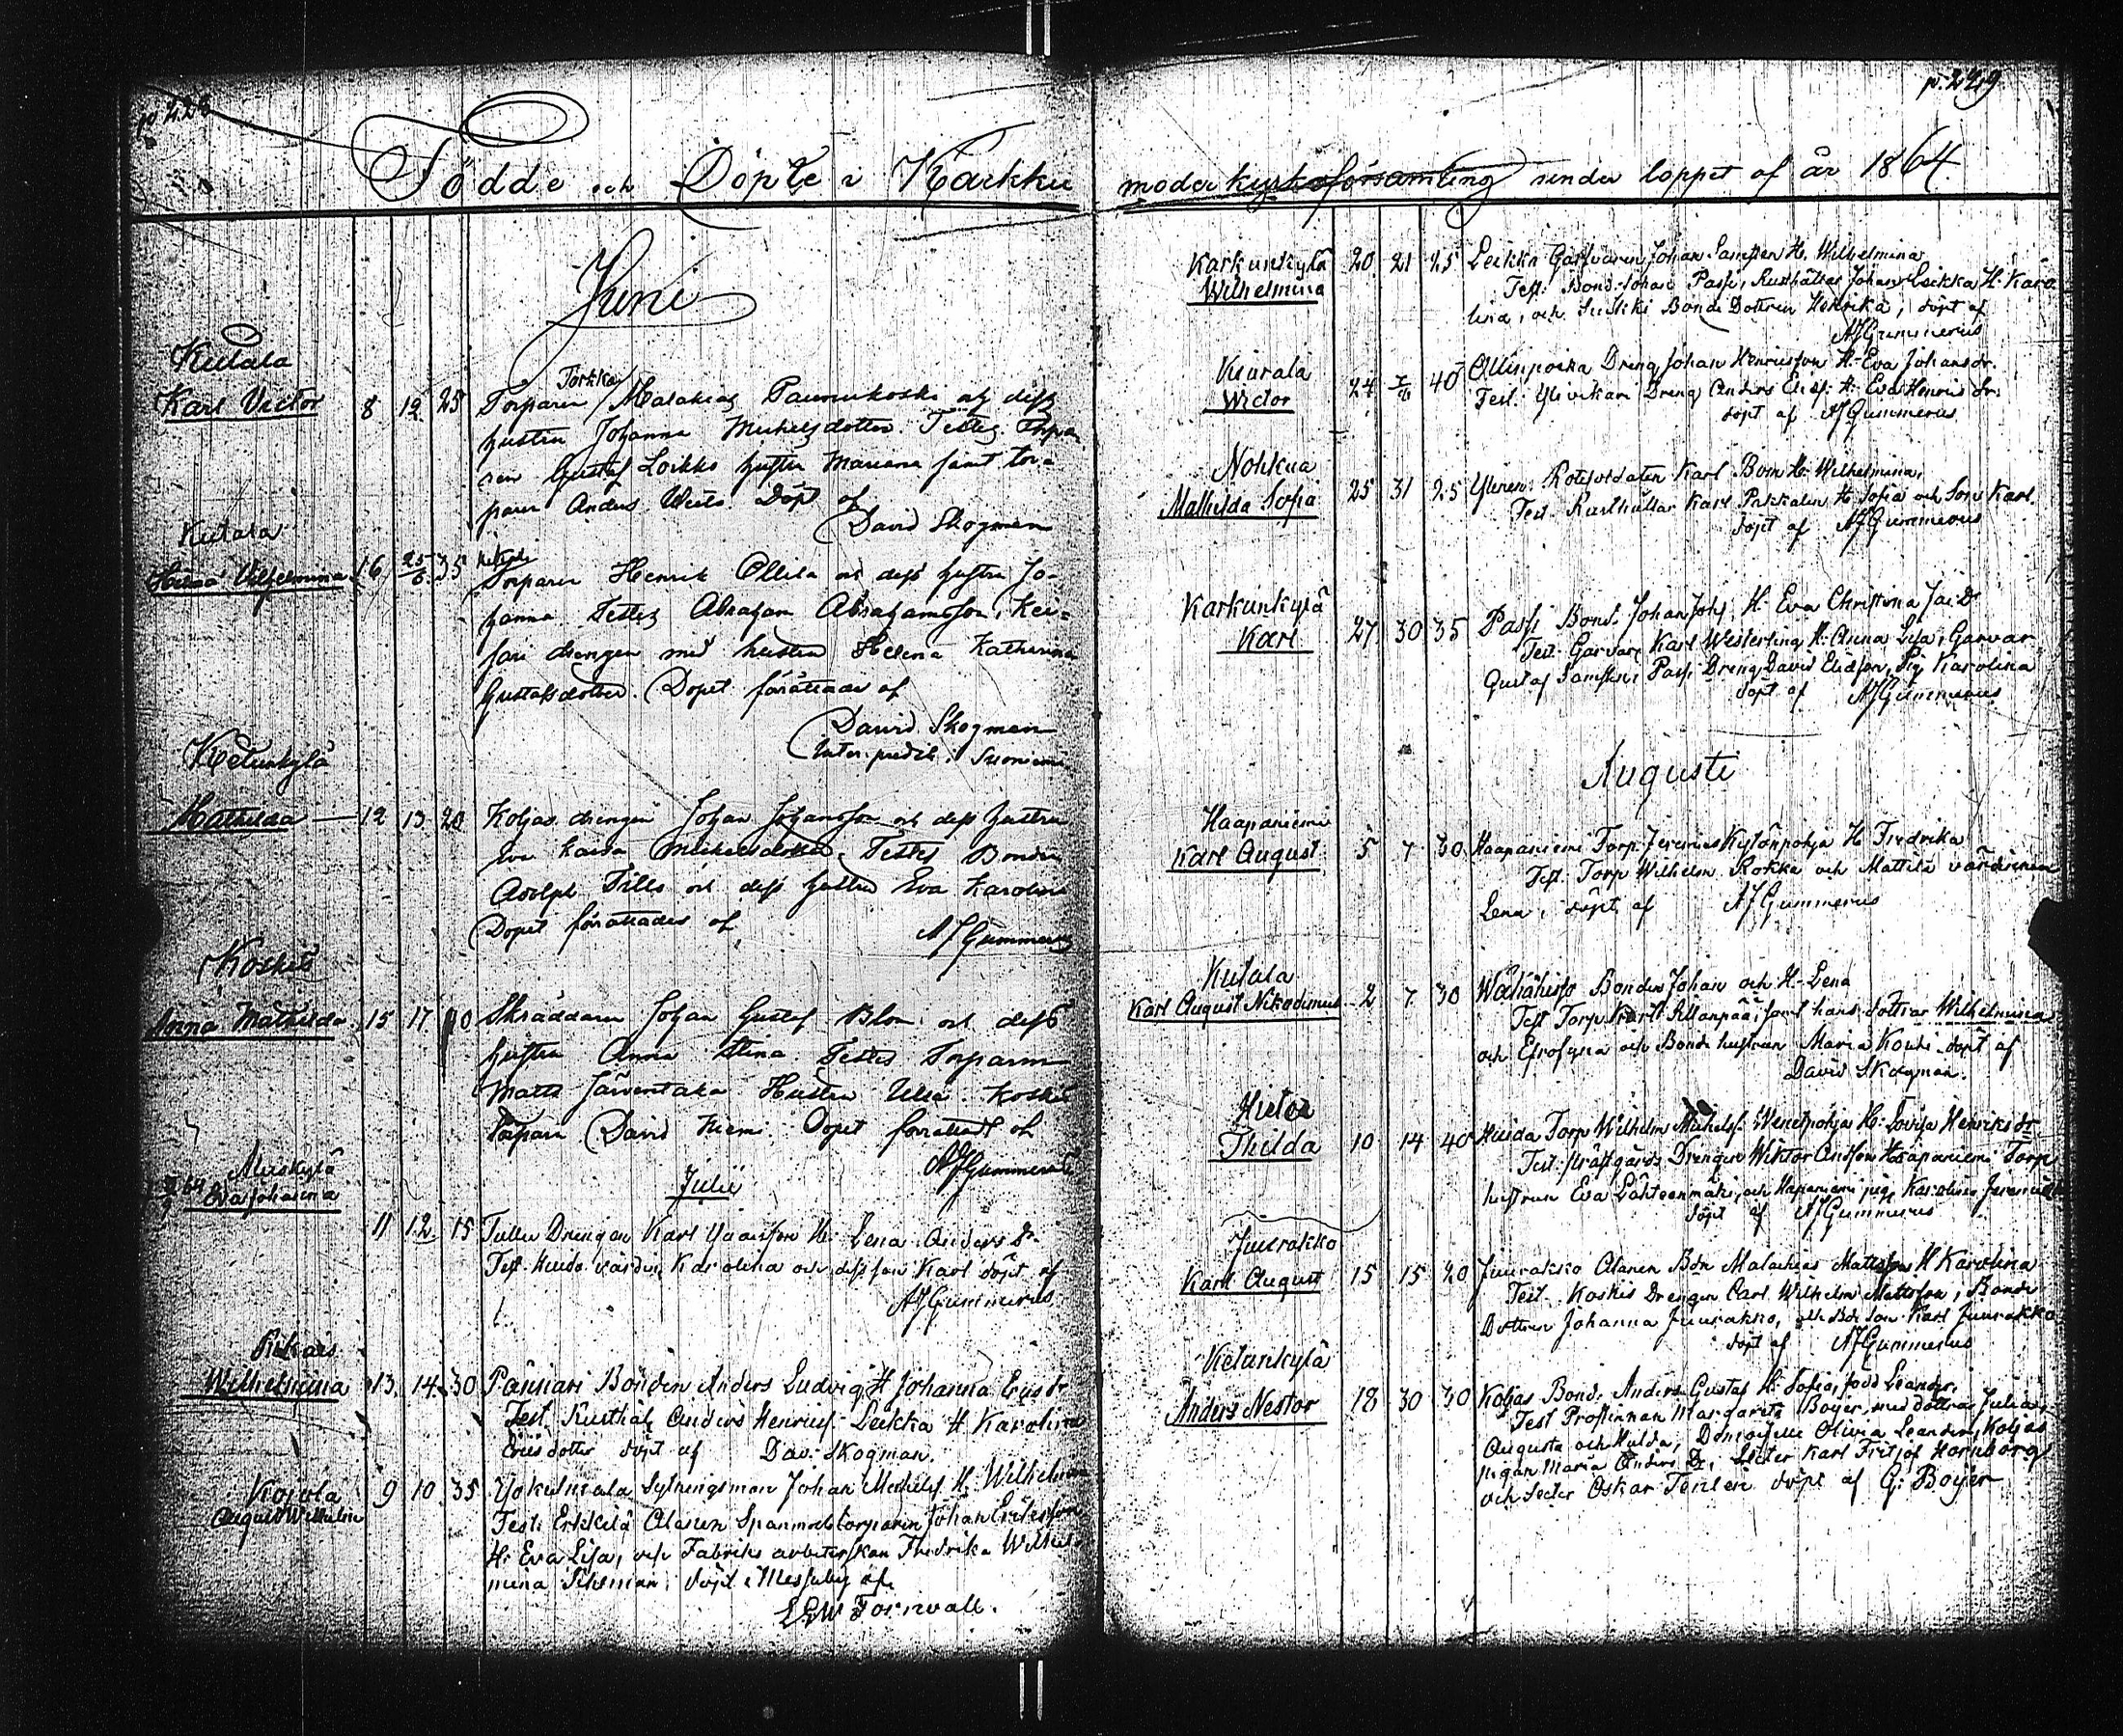 p. 228
Födde och Döpte i Karkku
Juni
Kutala
Karl Victor 8 12 25 Torparen Torkka Malakias Paununkoski och dess
hustru Johanna Michelsdotter. Testes Torpa-
ren Gustaf Loikko hustru Mariana samt tor-
paren Anders Döpt af
David Skogman
Kutala
Vilhelmina 16 25/6 35 Torparen Henrik Ollila och dess hustru Jo-
hanna Testes Abraham Abrahamsson, Kei-
sari drengen med hustru Helena Katherina
Gustafsdotter. Dopet förättades af
David Skogman
predik. i Suoniemi
Ketunkylä
Mathilda 12 13 20 Koljas drengen Johan Johansson och dess hustru
Michelsdotter. Testes Bonden
Adolph Tills och dess hustru Eva Karolina
Dopet förättades af AJGummerus
Koskis
Anna Mathilda 15 17 Skräddaren Johan Gustaf Blom och dess
hustru Anna Stina Testes Torparen
Matts Järventaka Hustru Ulla Koskis
Torparen David Niemi Dopet förättadt af
AJGummerus
Julii
Muskylä
Eva Johanna
11 12 15 Tulle Drengen Karl H. Lena Anders Dr
Test. Huida värdin Karolina och dess son Karl döpt af
AJGummerus
Wilhelmina 13 14 30 Pännäri Bonden Anders Ludvig H Johanna Ersdr
Test. Rusthål. Anders Henriks. Leikka H Karolina
Ersdotter döpt af Dav. Skogman.
Kojola
August Wilhelm 9 10 35 Sytningsman Johan Michels. H. Wilhelmina
Test. Erkkilä Alasen Spanmålstorparen Johan Ericsson
H. Eva Lisa, och Fabriks arbeterskan Fredrika Wilhel-
mina döpt i Messuby af
Forsvall.
p. 229
moderkyrkoförsamling under loppet af år 1864.
Karkunkylä
Wilhelmina 20 21 25 Leikka Garfvaren Johan Samsten H. Wilhelmina
Test. Bond. Johan Passi, Rusthållar Johan Leikka H. Karo-
lina, och Bonde Dottren Henrika, döpt af
AJGummerus
Kiurala
Wictor 24 40 Ollinpoika Dreng Johan Henriksson H. Eva Johansdr.
Test. Ylivikari Dreng Anders H. Eva Henriksdr.
döpt af AJGummerus
Nohkua
Mathilda Sofia 25 31 25 Rotesoldaten Karl Bom H. Wilhelmina,
Test. Rusthållar Karl H. Sofia och Son Karl.
döpt af AJGummerus
Karkunkylä
Karl 27 30 35 Passi Bond. Johan Johs. H. Eva Christina
Test. Garvare Karl Westerling H. Anna Lisa, Garvar
Gustaf Samsten, Passi Dreng David Elidson, Pig. Karolina
döpt af AJGummerus
Augusti
Haapaniemi
Karl August 5 7 30 Haapaniemi Torp. Jeremias Kylänpohja H Fredrika
Test. Torp Wilhelm Rokka och Mattila värdinnan
Lena, döpt af AJGummerus
Kutala
Karl August Nikodemus 2 7 30 Bonden Johan och H. Lena
Test Torp. Karl Sillanpää, samt hans döttrar Wilhelmina
och Efrosyna och Bonde hustrun Maria döpt af
David Skogman.
Thilda 10 14 40 Huida Torp Wilhelm Michels. H. Lovisa Henriksdr
Test. Prästgårds Drengen Wiktor Haapaniemi Torp
hustrun Eva Lähteenmäki, och Haapaniemi pig. Karolina
döpt af AJGummerus
Juurakko
Karl August 15 15 20 Juurakko Alanen Bon Malachias Mattsson H Karolina
Test. Koskis Drengen Carl Wilhelm Mattsson, Bonde
Dottren Johanna Juurakko, och Bde Son Karl Juurakko
döpt af AJGummerus
Ketunkylä
Anders Nestor 18 30 30 Koljas Bond. Anders Gustaf H. Sofia, född Leander.
Test Prostinnan Margareta Boijer, med döttrar Juliana
Augusta och Hulda, Demoiselle Olivia Leander, Koljas
pigan Maria Anders Dr, Karl Fritjof Hornborg
och Oskar döpt af G. Boijer